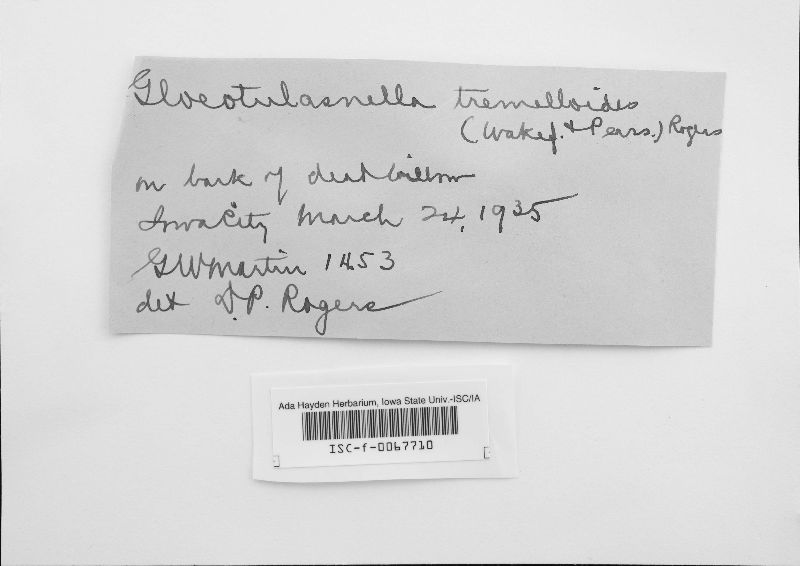 Gloeotulasnella tremelloides
(Wakef. & Pears.) Rogers
on bark of dead willow
Iowa City March 24, 1935
GWMartin 1453
det D.P. Rogers
Ada Hayden Herbarium, Iowa State Univ.-ISC/IA
ISC-f-0067710